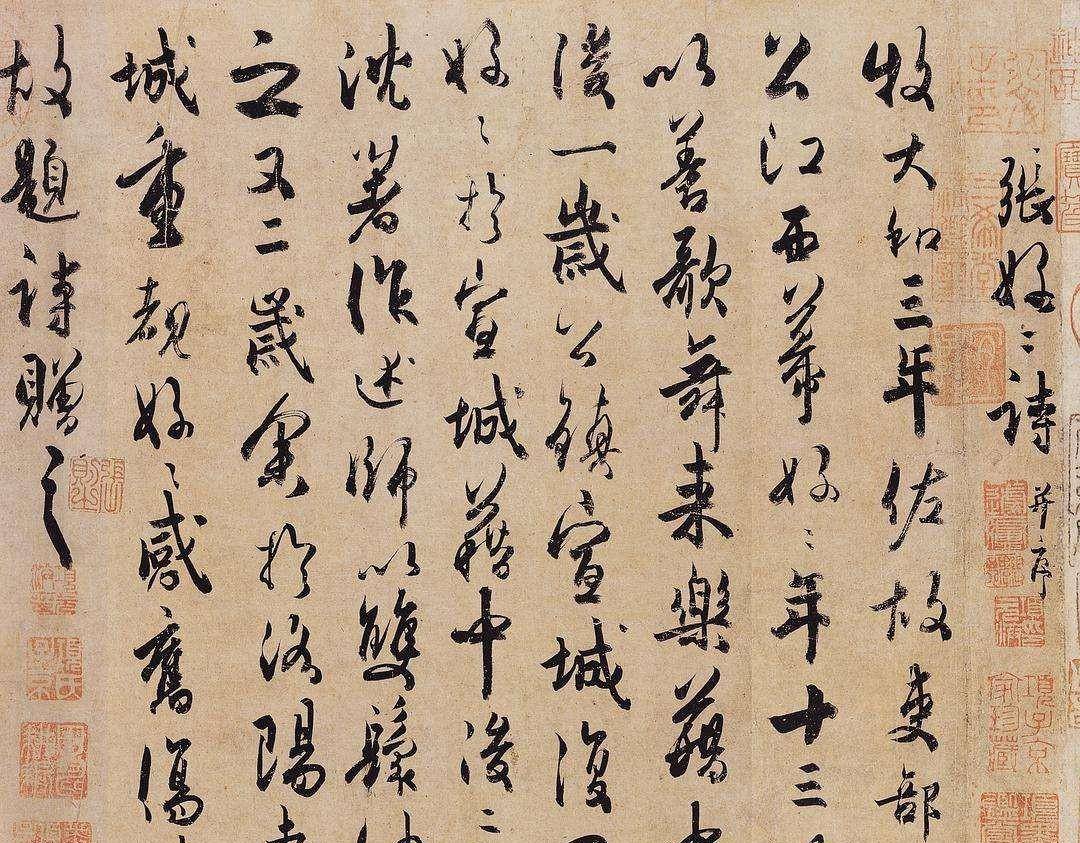 張好〻詩 并序
牧大和三年佐故吏部
公江西幕好〻年十三
以善歌舞来樂籍
後一歲公鎮宣城復
好〻於宣城籍中後二
沈著作述師以雙鬟
之又二歲余於洛陽
城重覩好〻感舊傷
故題詩贈之
項子京家珍藏